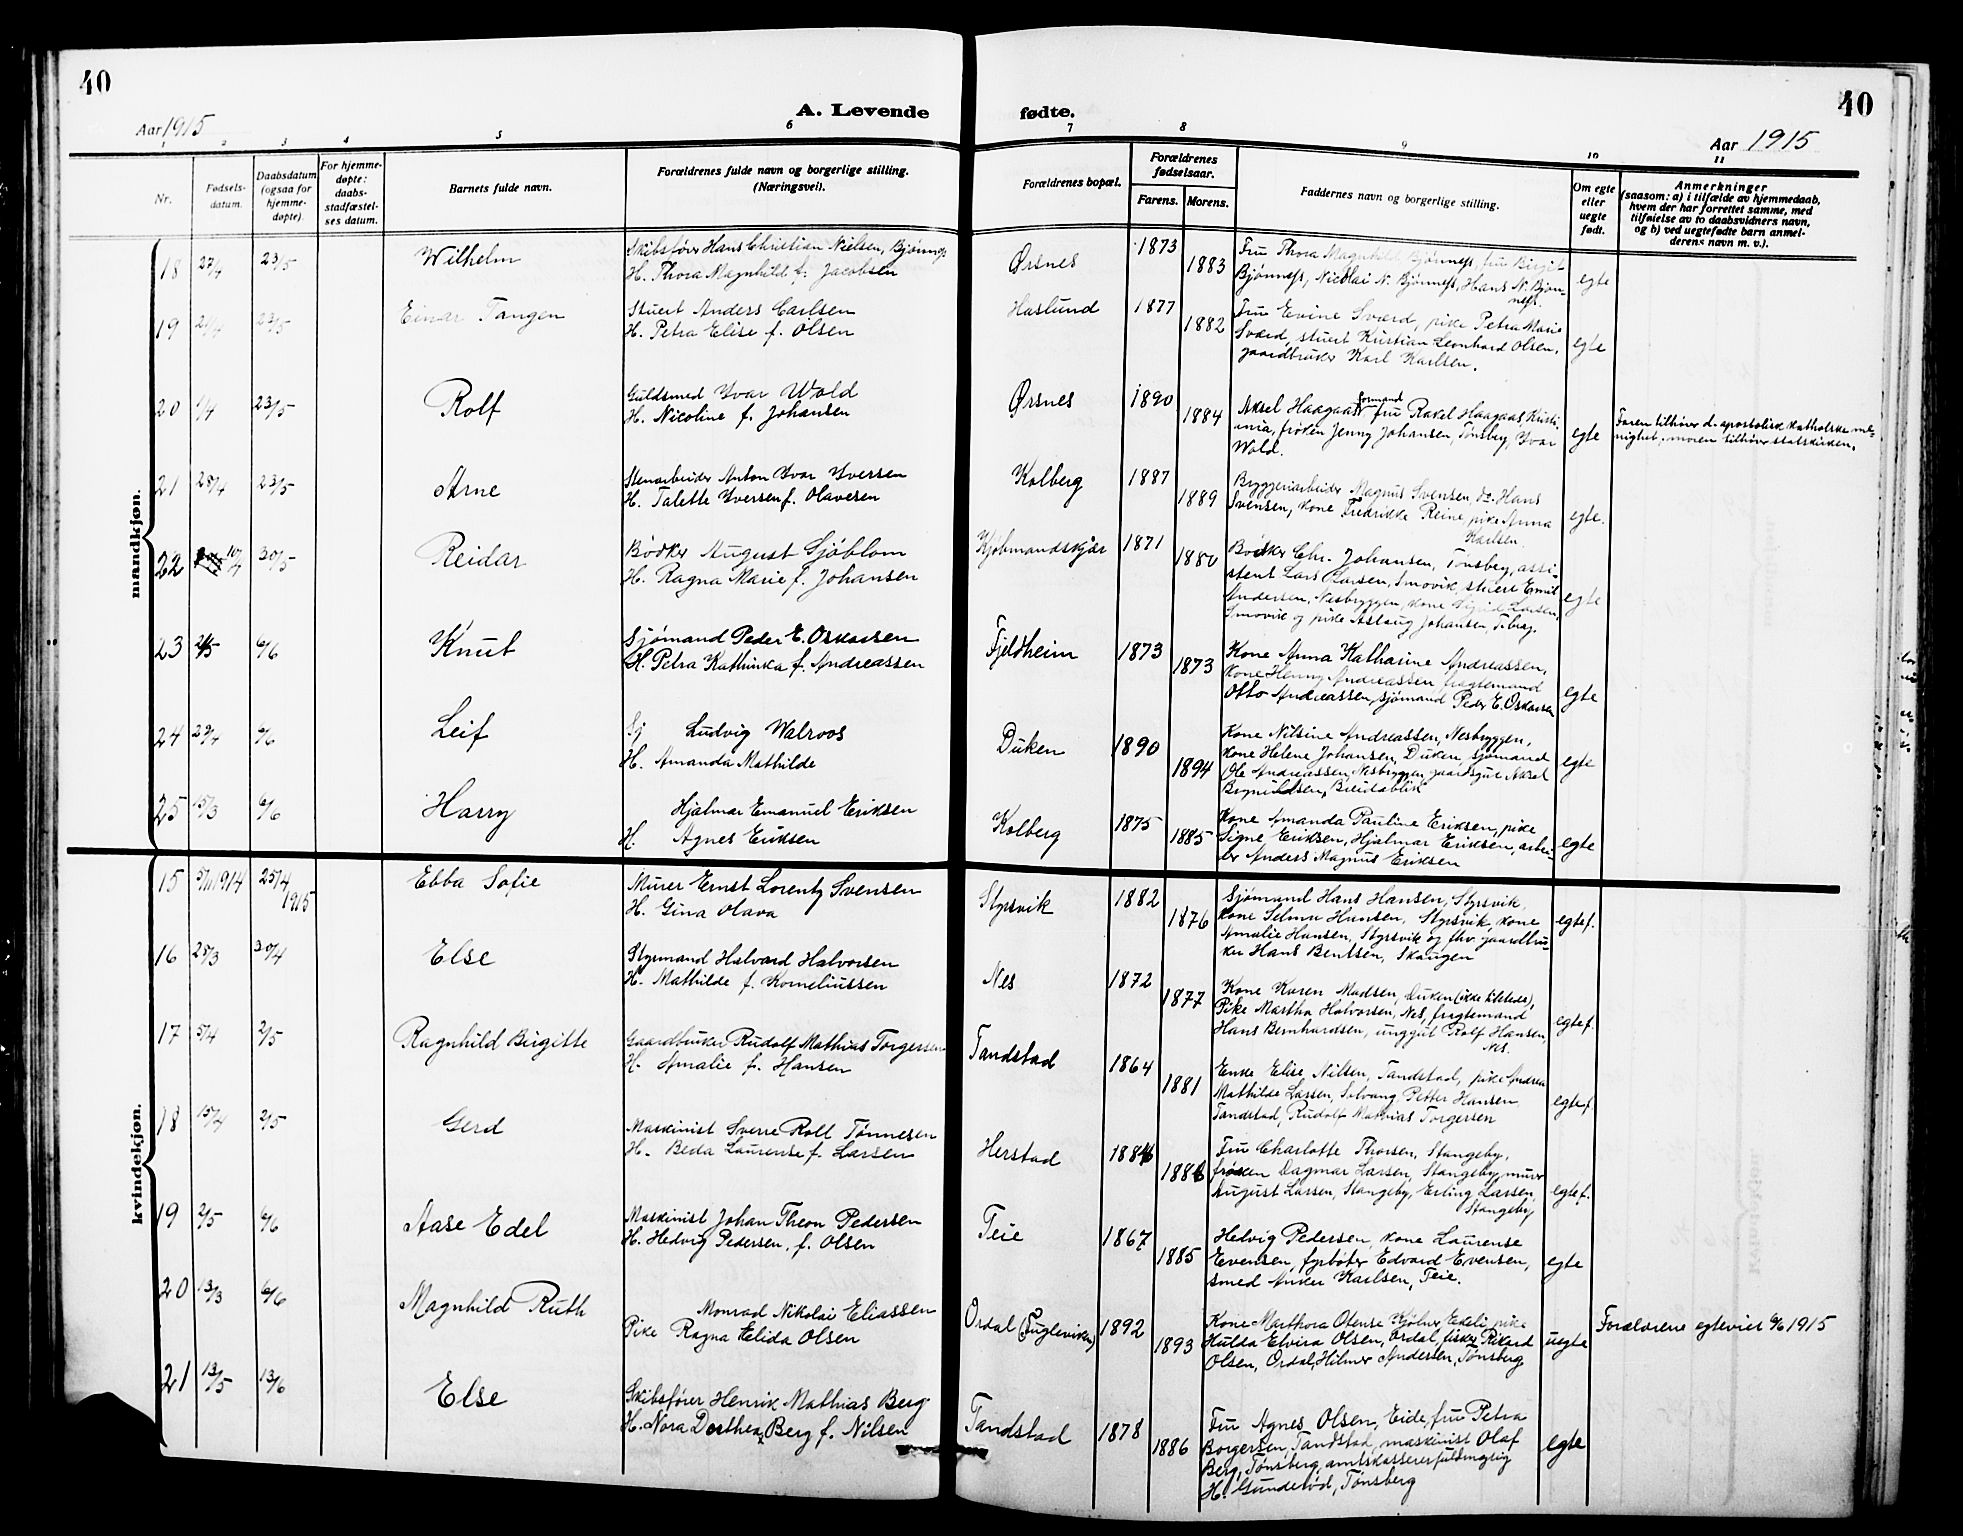 40
40
A. Levende fødte.
Aar 1915
Aar 1915
1 2 3 4 5 6 7 8 9 10 11
Nr.
Fødsels-
datum.
Daabsdatum
(ogsaa for
hjemme-
døpte).
For hjemme-
døpte:
daabs-
stadfæstel-
ses datum.
Barnets fulde navn.
Forældrenes fulde navn og borgerlige stilling.
(Næringsvei).
Forældrenes bopæl.
Forældrenes
fødselsaar.
Farens. Morens.
Faddernes navn og borgerlige stilling.
Om egte
eller
uegte
født.
Anmerkninger
(saasom: a) i tilfælde av hjemmedaab,
hvem der har forrettet samme, med
tilføielse av to daabsvidners navn,
og b) ved uegtefødte barn anmel-
derens navn m. v.).
mandkjøn.
18 27/4 23/5 Wilhelm
Skibsfører Hans Christian Nielsen Bjønnes
H. Thora Magnhild f. Jacobsen
Ørsnes 1873 1883
Fru Thora Magnhild Bjønness, fru Birgit
Bjønness, Nicolai N. Bjønness, Hans N. Bjøn-
ness.
egte
19 21/4 23/5 Einar Tangen
Stuert Anders Carlsen
H. Petra Elise f. Olsen
Haslund 1877 1882
Fru Evine Sværd, pike Petra Marie
Sværd, stuert Kristian Leonhard Olsen,
gaardbruker Karl Karlsen.
egte
20 1/4 23/5 Rolf
Guldsmed Yvar Wold
H. Nicoline f. Johansen
Ørsnes 1890 1884
Aksel Haagaas formand fru Rakel Haagaas, Kristi-
ania, frøken Jenny Johansen, Tønsberg, Yvar
Wold.
egte
Faren tilhører d. apostolisk katholske me-
nighet, moren tilhører statskirken.
21 28/4 23/5 Arne
Stenarbeider Anton Yvar Yversen
H. Talette Yversen f. Olavesen
Kolberg 1887 1889
Bryggeriarbeider Magnus Svensen, do. Hans
Svensen, kone Fredrikke Reine, pike Anna
Karlsen.
egte.
22 10/4 30/5 Reidar
Bødker August Sjøblom
H. Ragna Marie f. Johansen
Kjøbmandskjær 1871 1880
Bødker Chr. Johansen, Tønsberg, assi-
stent Lars Larsen, Smovik, stuert Emil
Andersen, Nesbryggen, kone Sigrid Larsen,
Smovik og pike Aslaug Johansen, Tbrg.
egte
23 2/5 6/6 Knut
Sjømand Peder E. Oskarsen
H. Petra Kathinka f. Andreassen
Fjeldheim 1873 1873
Kone Anna Katharine Andreassen,
kone Henny Andreassen, fragtemand
Otto Andreassen, sjømand Peder E. Oskarsen
egte
24 29/4 6/6 Leif
Sj Ludvig Walroos
H. Amanda Mathilde
Duken 1890 1894
Kone Nilsine Andreassen, Nesbryggen,
kone Helene Johansen, Duken, sjømand
Ole Andreassen, Nesbryggen, gaardsgut Aksel
Brynildsen, Breidablik
egte
25 15/3 6/6 Harry
Hjalmar Emanuel Eriksen
H. Agnes Eriksen
Kolberg 1875 1885
Kone Amanda Pauline Eriksen, pike
Signe Eriksen, Hjalmar Eriksen, arbei-
der Anders Magnus Eriksen
egte
kvindekjøn.
15 5/11 1914 25/4 1915 Ebba Sofie
Murer Ernst Lorentz Svensen
H. Gina Olava
Styrsvik 1882 1876
Sjømand Hans Hansen, Styrsvik,
kone Selma Hansen, Styrsvik, kone
Amalie Hansen, Styrsvik og fhv. gaardbru-
ker Hans Bentsen, Skaugen
egte f.
16 28/3 30/4 Else
Styrmand Halvard Halvorsen
H. Mathilde f. Korneliussen
Nes 1872 1877
Kone Karen Madsen, Duken (ikke tilstede),
Pike Martha Halvorsen, Nes, fragtemand
Hans Bernhardsen, unggut Rolf Hansen,
Nes.
egte f.
17 5/4 2/5 Ragnhild Birgitte
Gaardbruker Rudolf Mathias Torgersen
H. Amalie f. Hansen
Tandstad 1864 1881
Enke Elise Nilsen, Tandstad, pike Andrea
Mathilde Larsen, Solvang, Petter Hansen,
Tandstad, Rudolf Mathias Torgersen
egte f.
18 15/4 2/5 Gerd
Maskinist Sverre Roll Tønnesen
H. Beda Laurense f. Larsen
Herstad 1884 1886
Fru Charlotte Thorsen, Stangeby,
frøken Dagmar Larsen, Stangeby, murer
August Larsen, Stangeby, Erling Larsen,
Stangeby
egte f.
19 2/5 6/6 Aase Edel
Maskinist Johan Theon Pedersen
H. Hedvig Pedersen, f. Olsen
Teie 1867 1885
Helvig Pedersen, kone Laurense
Evensen, fyrbøter Edvard Evensen,
smed Anker Karlsen, Teie.
egte
20 13/3 6/6 Magnhild Ruth
Monrad Nikolai Eliassen
Pike Ragna Elida Olsen
Ordal (Fugleviken) 1892 1893
Kone Marthora Otense Kjølner, Ekeli, pike
Hulda Elvira Olsen, Ordal, fisker Rikard
Olsen, Ordal, Hilmer Andersen, Tønsberg
uegte
Forældrene egteviet 6/6 1915
21 13/5 13/6 Else
Skibsfører Henrik Mathias Berg
H. Nora Dorthea Berg f. Nilsen
Tandstad 1878 1886
Fru Agnes Olsen, Eide, fru Petra
Borgersen, Tandstad, maskinist Olaf
Berg, Tønsberg, amtskassererfuldmægtig
H. Gundersød, Tønsberg
egte